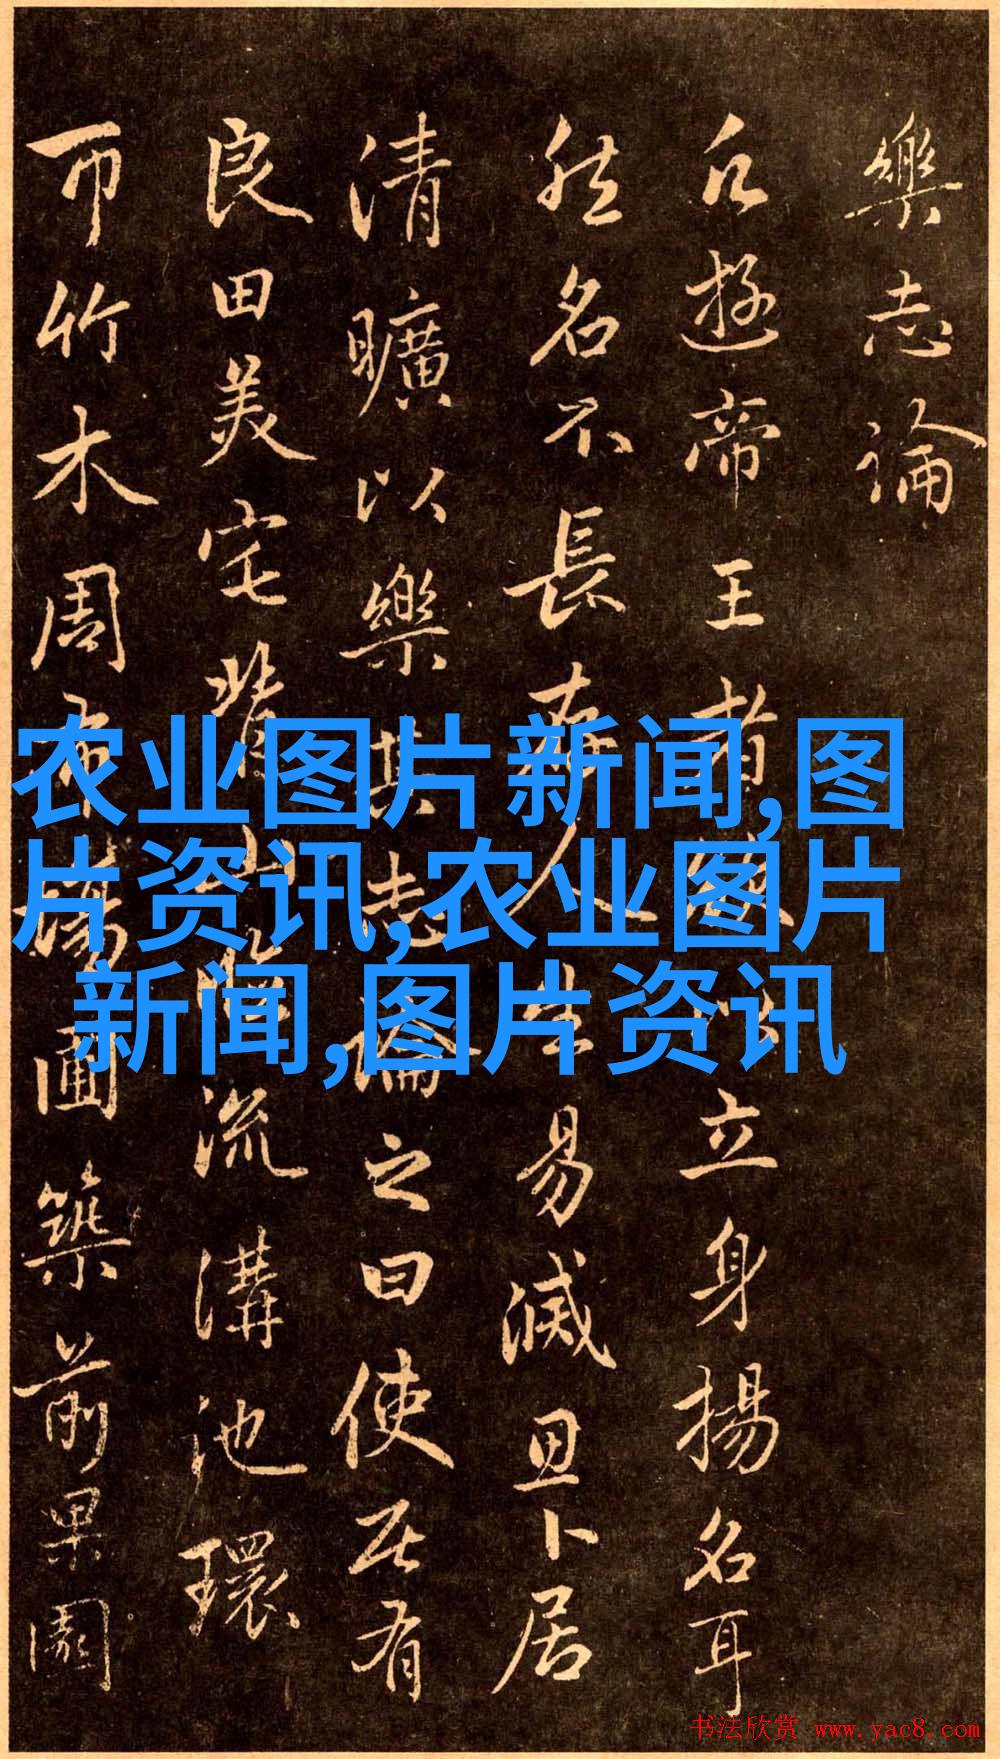 樂志論
凡遊帝王者欲以立身揚名耳
然名不長存人生易滅思卜居
清曠以樂其志論之曰使居有
良田美宅背山臨流溝池環
帀竹木周布場圃築前果園
农业图片新闻,图
片资讯,农业图片
新闻,图片资讯
书法欣赏 www.yac8.com